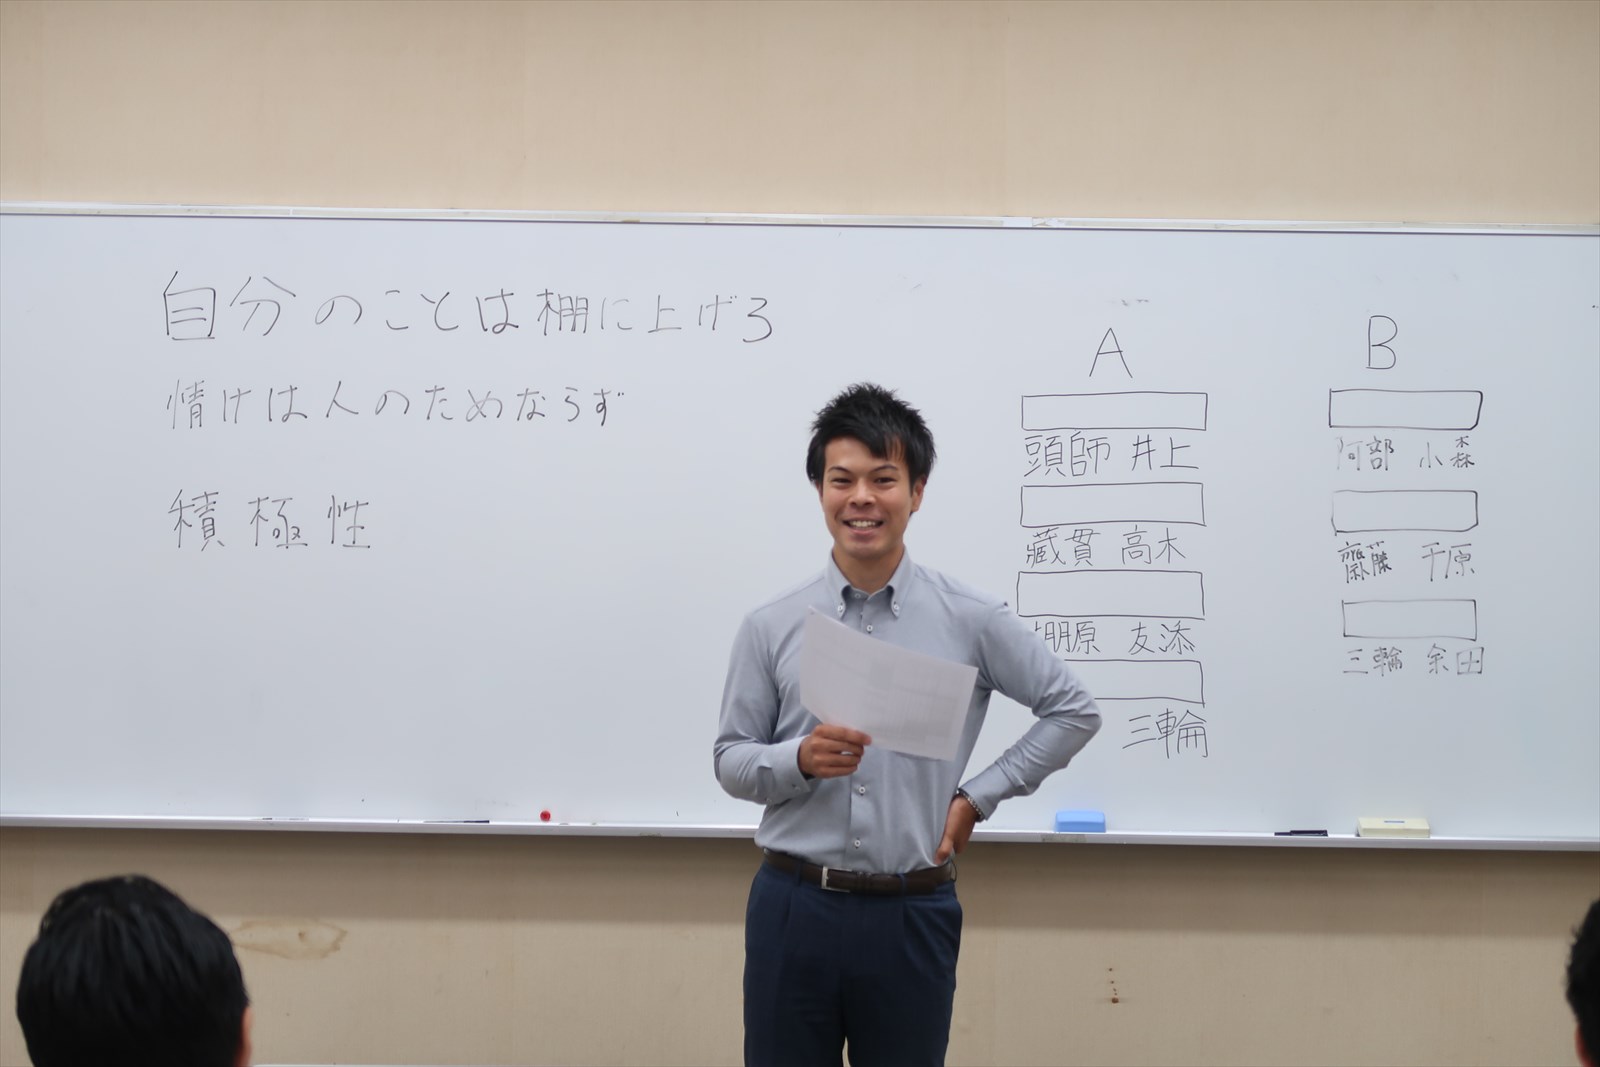 自分のことは棚に上げろ
情けは人のためならず
積極性
A
頭師 井上
蔵貫 高木
棚原 友添
三輪
B
阿部 小森
齋藤 千原
三輪 余田